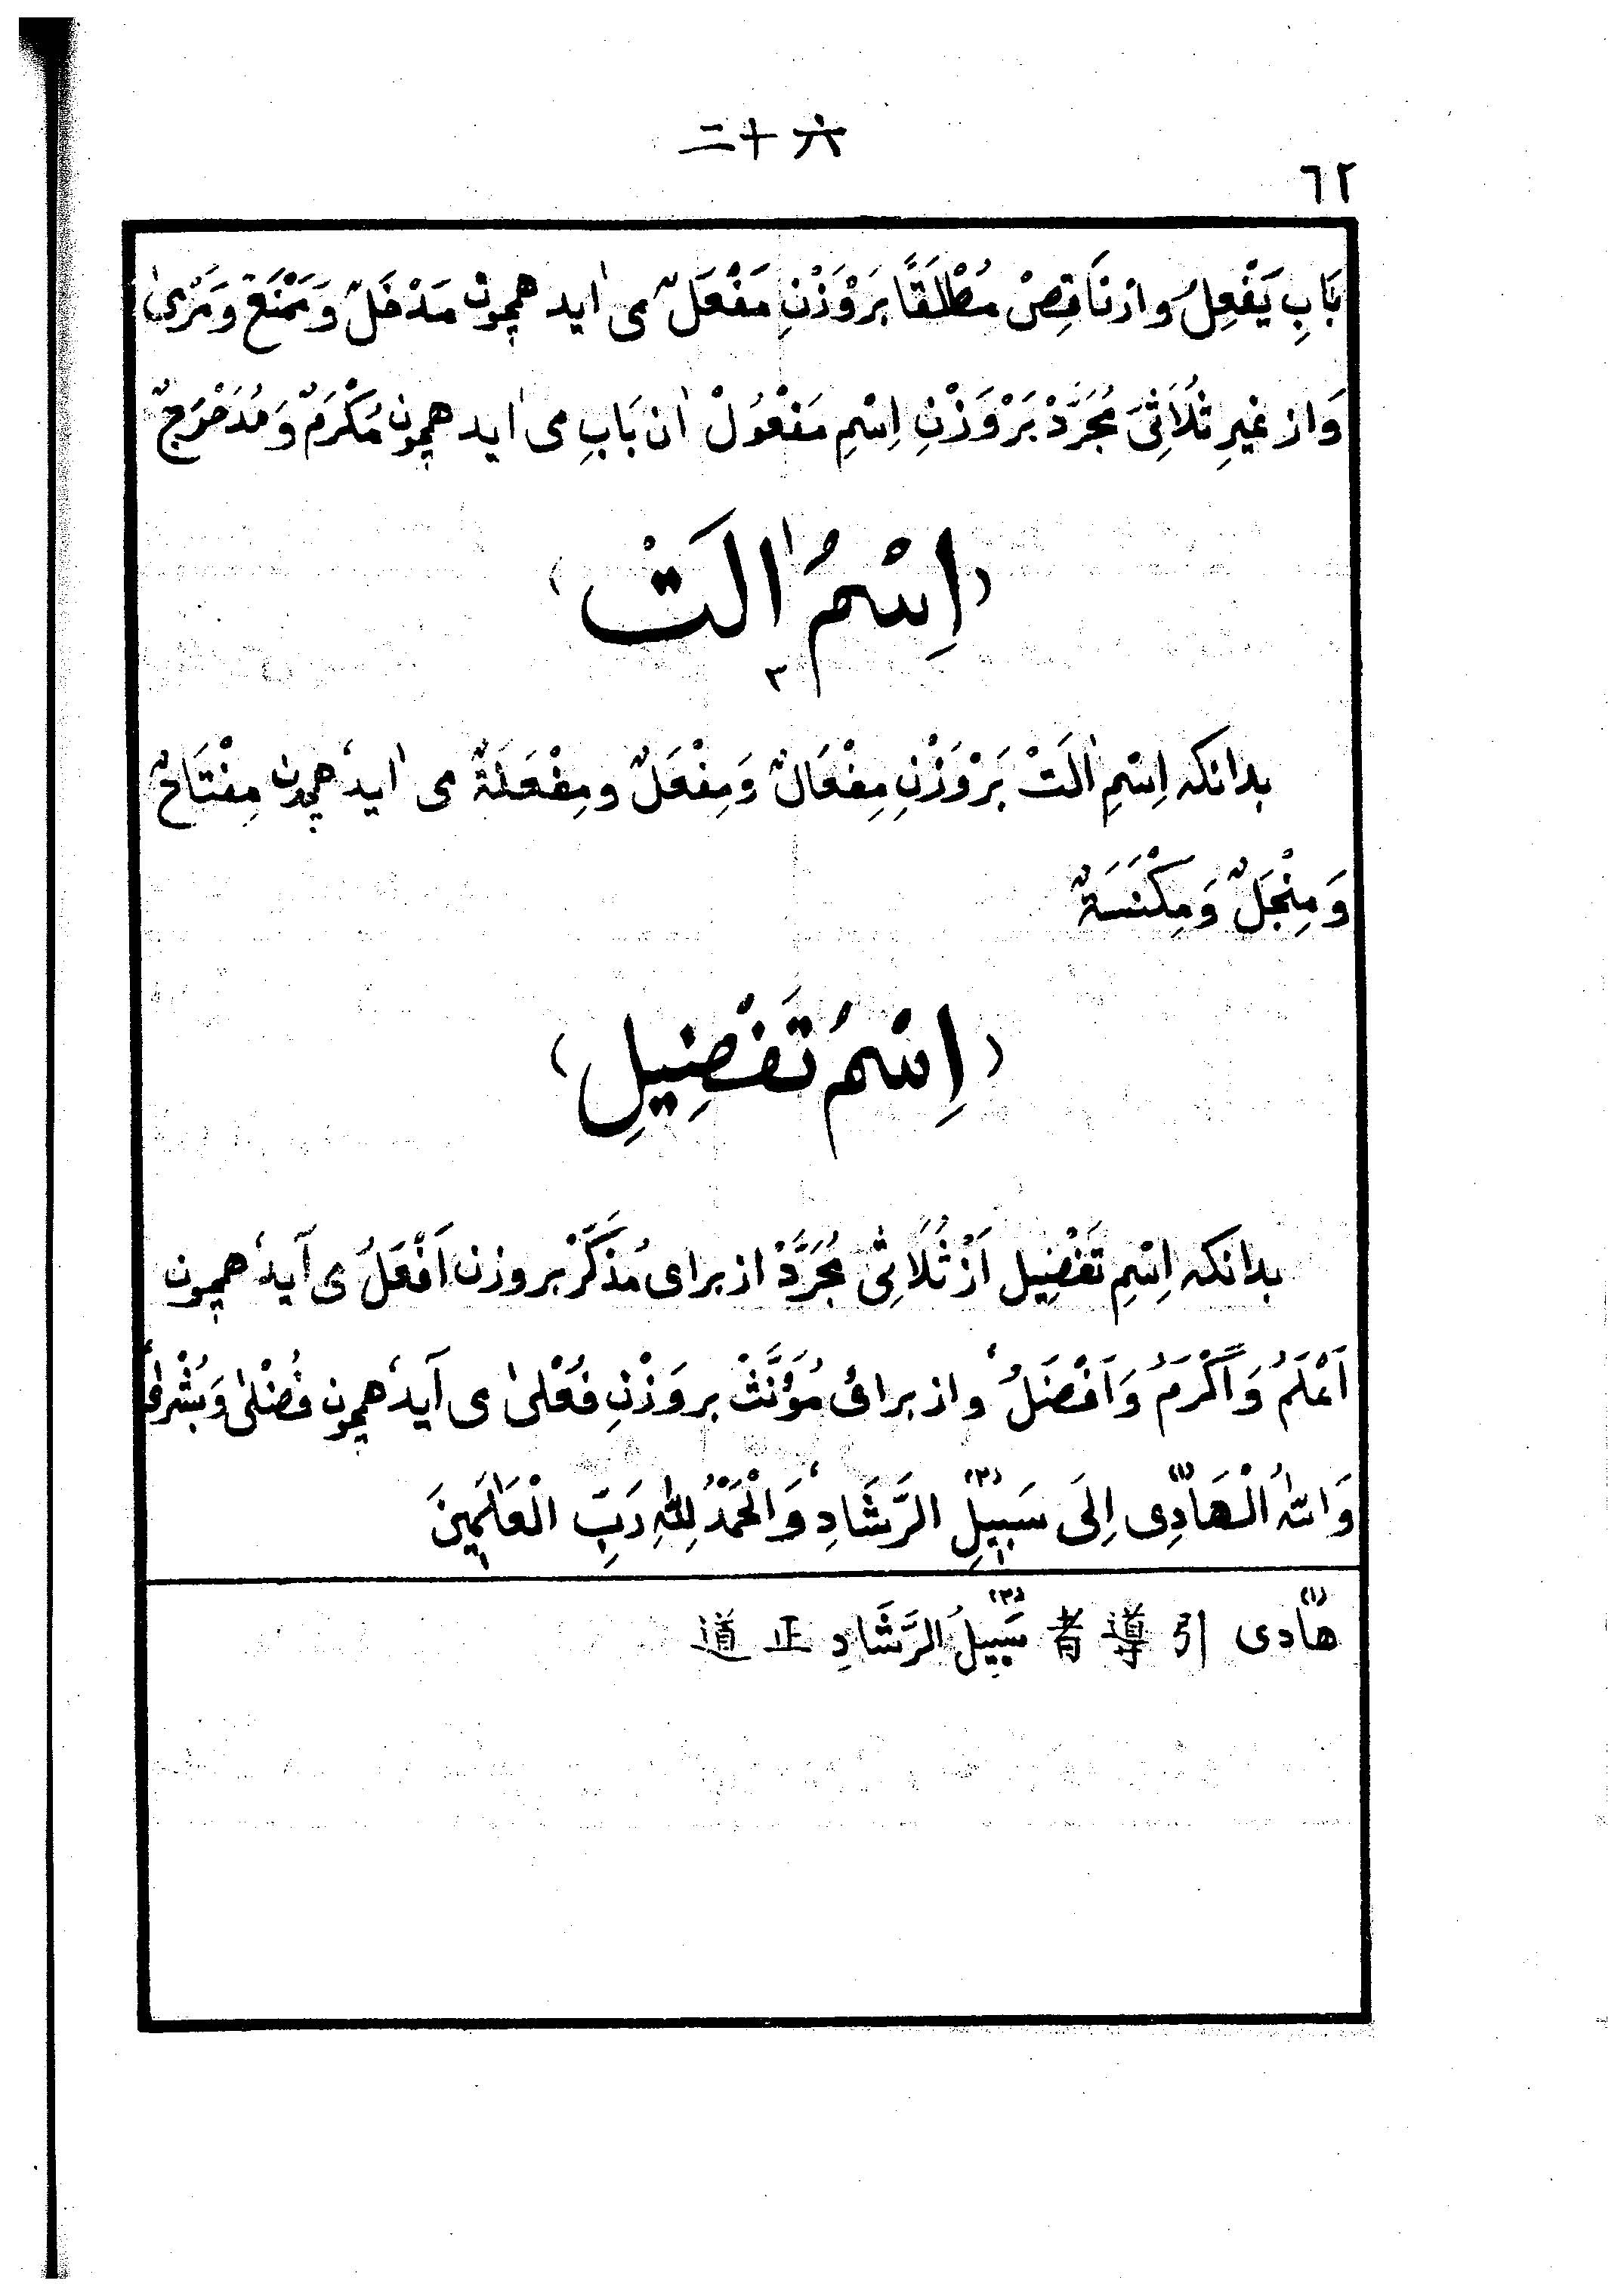 二十六
٦٢
بَابِ يَفْعِلُ واز نَاقِصْ مُطْلَقًا بَرْوَزْنِ مَفْعَلٌ می اٰيد همچون مَدْخَلٌ وَمَمْنَعٌ وَمَرْمىٰ
وَاز غيرِ ثُلَاثِیَ مُجَرَّدْ بَرْوَزْنِ اِسْمِ مَفْعُولْ اٰن بَابِ می اٰيد همچون مُكْرَمٌ وَمُدَحْرَجٌ
﴿اِسْمُ اٰلَتْ﴾
٣
بدانكه اِسْمِ اٰلَتْ بَرْوَزْنِ مِفْعَالٌ وَمِفْعَلٌ ومِفْعَلَةٌ می اٰيد، همچون مِفْتَاحٌ
وَمِنْجَلٌ وَمِكْنَسَةٌ
﴿اِسْمُ تَفْضِيلِ﴾
بدانكه اِسْمِ تَفْضِيل اَزْ ثُلَاثِی مُجَرَّدْ از برای مُذَكَّرْ بروزن اَفْعَلُ می آيد، همچون
اَعْلَمُ وَاَكْرَمُ وَاَفْضَلُ، واز برائ مُؤَنَّثْ بروَزْنِ فُعْلیٰ می آيد، همچون فُضْلیٰ وَبُشْریٰ
وَاللهُ الْهَادِّی(١) اِلَى سَبِيْلِ(٢) الرَّشَادِ، وَالْحَمْدُ لِلّٰهِ رَبِّ الْعَالَمِينَ
(١) هَادی 引導者 (٢) سَبِيلُ الرَّشَادِ 正道